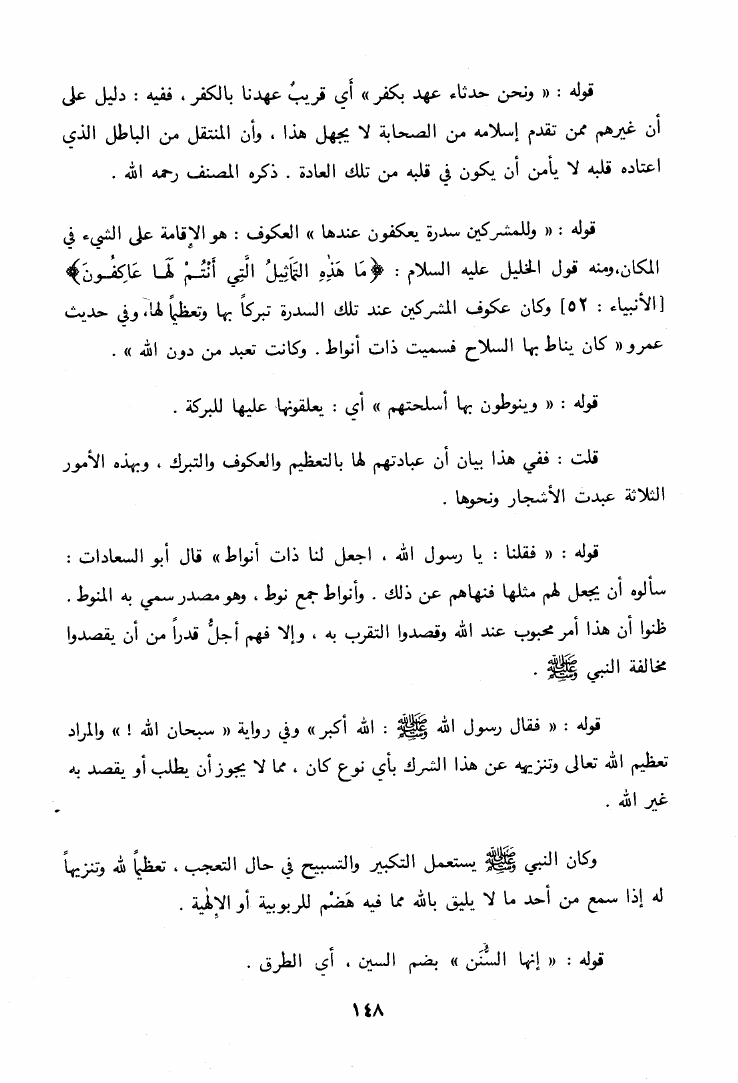 قوله : « ونحن حدثاء عهد بكفر » أي قريبٌ عهدنا بالكفر ، ففيه : دليل على
أن غيرهم ممن تقدم إسلامه من الصحابة لا يجهل هذا ، وأن المنتقل من الباطل الذي
اعتاده قلبه لا يأمن أن يكون في قلبه من تلك العادة . ذكره المصنف رحمه الله .
قوله : « وللمشركين سدرة يعكفون عندها » العكوف : هو الإقامة على الشيء في
المكان،ومنه قول الخليل عليه السلام : ﴿مَا هَذِهِ التَّمَاثِيلُ الَّتِي أَنْتُمْ لَهَا عَاكِفُونَ﴾
[الأنبياء : ٥٢] وكان عكوف المشركين عند تلك السدرة تبركاً بها وتعظيماً لها، وفي حديث
عمرو « كان يناط بها السلاح فسميت ذات أنواط . وكانت تعبد من دون الله » .
قوله : « وينوطون بها أسلحتهم » أي : يعلقونها عليها للبركة .
قلت : ففي هذا بيان أن عبادتهم لها بالتعظيم والعكوف والتبرك ، وبهذه الأمور
الثلاثة عبدت الأشجار ونحوها .
قوله : « فقلنا : يا رسول الله ، اجعل لنا ذات أنواط » قال أبو السعادات :
سألوه أن يجعل لهم مثلها فنهاهم عن ذلك . وأنواط جمع نوط ، وهو مصدر سمي به المنوط .
ظنوا أن هذا أمر محبوب عند الله وقصدوا التقرب به ، وإلا فهم أجلُّ قدراً من أن يقصدوا
مخالفة النبي ﷺ .
قوله : « فقال رسول الله ﷺ : الله أكبر » وفي رواية « سبحان الله ! » والمراد
تعظيم الله تعالى وتنزيهه عن هذا الشرك بأي نوع كان ، مما لا يجوز أن يطلب أو يقصد به
غير الله .
وكان النبي ﷺ يستعمل التكبير والتسبيح في حال التعجب ، تعظيماً لله وتنزيهاً
له إذا سمع من أحد ما لا يليق بالله مما فيه هَضْم للربوبية أو الإلٰهية .
قوله : « إنها السُّنَن » بضم السين ، أي الطرق .
١٤٨